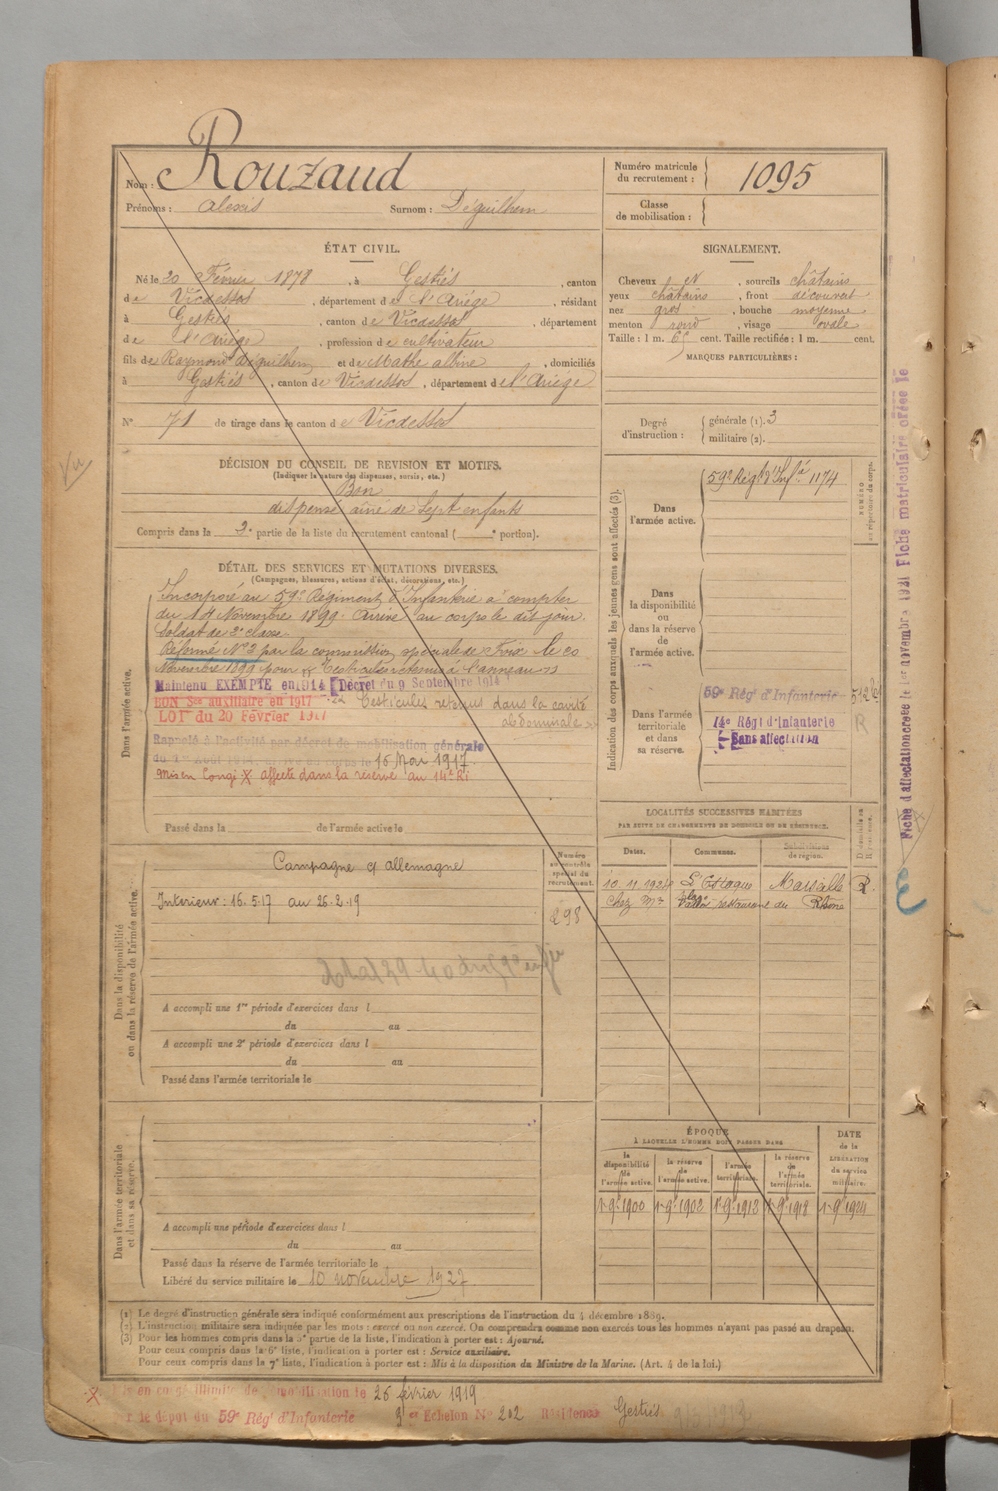 Nom : Rouzaud
Prénoms : Alexis Surnom : Déguilhem
Numéro matricule du recrutement : 1095
Classe de mobilisation :
ÉTAT CIVIL.
Né le 20 Février 1878, à Gestiés, canton
de Vicdessos, département de l'Ariége, résidant
à Gestiés, canton de Vicdessos, département
de l'Ariége, profession de cultivateur
fils de Raymond déguilhem et de Mathe albine, domiciliés
à Gestiés, canton de Vicdessos, département de l'Ariége
N° 71 de tirage dans le canton de Vicdessos
SIGNALEMENT.
Cheveux et, sourcils châtains
yeux châtains, front découvert
nez gros, bouche moyenne
menton rond, visage ovale
Taille : 1 m. 65 cent. Taille rectifiée : 1 m. cent.
MARQUES PARTICULIÈRES :
Degré d'instruction : générale (1). 3
militaire (2).
Vu
DÉCISION DU CONSEIL DE REVISION ET MOTIFS.
(Indiquer la nature des dispenses, sursis, etc.)
Bon
dispensé aîné de sept enfants
Compris dans la 2e partie de la liste du recrutement cantonal ( e portion).
DÉTAIL DES SERVICES ET MUTATIONS DIVERSES.
(Campagnes, blessures, actions d'éclat, décorations, etc.)
Dans l'armée active.
Incorporé au 59e Régiment d'Infanterie à compter
du 14 Novembre 1899. Arrivé au corps le dit jour.
Soldat de 2e classe.
Réformé N°2 par la commission spéciale de Foix le 20
Novembre 1899 pour "Testicules retenus à l'anneau"
Maintenu EXEMPTÉ en 1914 [Décret du 9 Septembre 1914
BON Sce auxiliaire en 1917 Testicules retenus dans la cavité
LOI du 20 Février 1917 abdominale
Rappelé à l'activité par décret de mobilisation générale
du 1er Août 1914. 16 Mai 1917.
Mis en Congé X affecté dans la réserve au 14e RI
Passé dans la de l'armée active le
Indication des corps auxquels les jeunes gens sont affectés (3).
NUMÉRO au répertoire du corps.
Dans l'armée active.
59e Régt d'Infie 1174
Dans la disponibilité ou dans la réserve de l'armée active.
Dans l'armée territoriale et dans sa réserve.
59e Régt d'Infanterie
14e Régt d'Infanterie R
Sans affectation
Fiche d'affectation créée le 1er novembre 1921 Fiche matriculaire créée le
LOCALITÉS SUCCESSIVES HABITÉES
PAR SUITE DE CHANGEMENTS DE DOMICILE OU DE RÉSIDENCE.
Dates. Communes. Subdivisions de région. D. domicile ou R. résidence.
10.11.1924 L'Estaque Marseille R.
chez Mr restaurant du Rhône
Dans la disponibilité ou dans la réserve de l'armée active.
Numéro au contrôle spécial du recrutement.
Campagne c/ allemagne
Intérieur : 16.5.17 au 26.2.19
298
A accompli une 1re période d'exercices dans l
du au
A accompli une 2e période d'exercices dans l
du au
Passé dans l'armée territoriale le
Dans l'armée territoriale et dans sa réserve.
A accompli une période d'exercices dans l
du au
Passé dans la réserve de l'armée territoriale le
Libéré du service militaire le 10 novembre 1927
ÉPOQUE
À LAQUELLE L'HOMME DOIT PASSER DANS
la disponibilité de l'armée active. la réserve de l'armée active. l'armée territoriale. la réserve de l'armée territoriale.
DATE de la LIBÉRATION du service militaire.
1er 9bre 1900 1er 9bre 1902 1er 9bre 1912 1er 9bre 1918 1er 9bre 1924
(1) Le degré d'instruction générale sera indiqué conformément aux prescriptions de l'instruction du 4 décembre 1889.
(2) L'instruction militaire sera indiquée par les mots : exercé ou non exercé. On comprendra comme non exercés tous les hommes n'ayant pas passé au drapeau.
(3) Pour les hommes compris dans la 5e partie de la liste, l'indication à porter est : Ajourné.
Pour ceux compris dans la 6e liste, l'indication à porter est : Service auxiliaire.
Pour ceux compris dans la 7e liste, l'indication à porter est : Mis à la disposition du Ministre de la Marine. (Art. 4 de la loi.)
X Mis en congé illimité de démobilisation le 26 février 1919
par le dépôt du 59e Régt d'Infanterie 3e Échelon N° 202 Résidence Gestiés